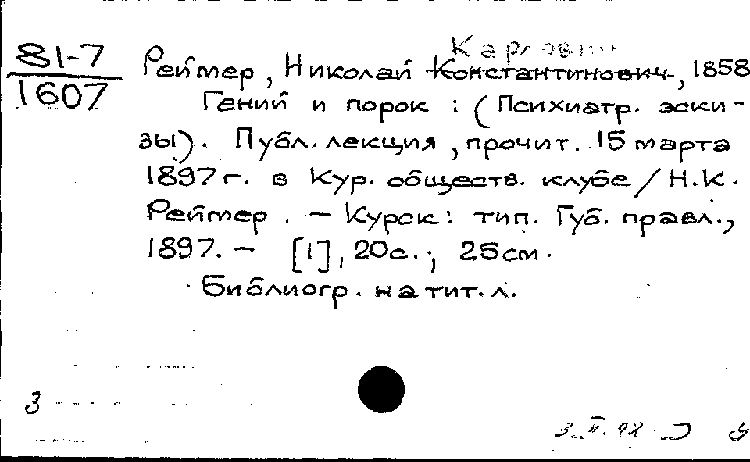 Карлович
81-7 Реймер, Николай Константинович, 1858
1607 Гений и порок : (Психиатр. эски-
зы). Публ. лекция, прочит. 15 марта
1897 г. в Кур. обществ. клубе / Н.К.
Реймер. – Курск: тип. Губ. правл.,
1897. – [1], 20 с.; 25 см.
Библиогр. на тит. л.
3